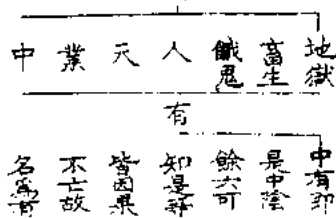 地獄
畜生
餓鬼
人
天
業
中
有
中有即
是中陰
餘六可
知是等
皆因果
不亡故
名爲有